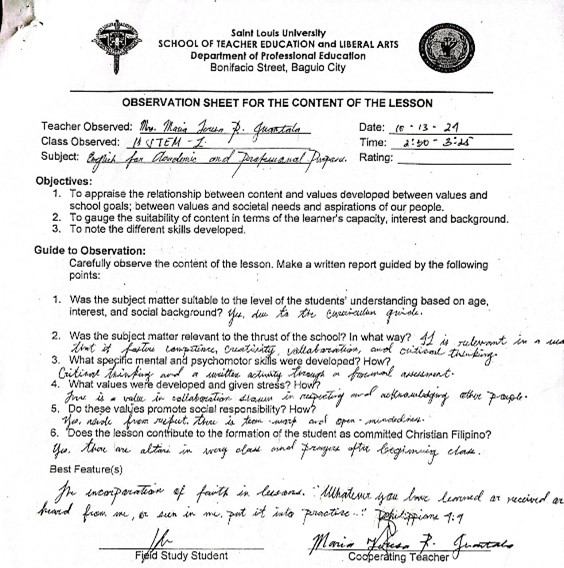 Saint Louis University
SCHOOL OF TEACHER EDUCATION and LIBERAL ARTS
Department of Professional Education
Bonifacio Street, Baguio City
OBSERVATION SHEET FOR THE CONTENT OF THE LESSON
Teacher Observed: Mrs. Maria Teresa R. Date: 10-13-21
Class Observed: STEM - Time: 2:30 - 3:25
Subject: English for Academic and Professional Purposes. Rating:
Objectives:
1. To appraise the relationship between content and values developed between values and
school goals; between values and societal needs and aspirations of our people.
2. To gauge the suitability of content in terms of the learner's capacity, interest and background.
3. To note the different skills developed.
Guide to Observation:
Carefully observe the content of the lesson. Make a written report guided by the following
points:
1. Was the subject matter suitable to the level of the students' understanding based on age,
interest, and social background? Yes, due to the curriculum guide.
2. Was the subject matter relevant to the thrust of the school? In what way? It is relevant in a
that it fosters competence, creativity, collaboration, and critical thinking.
3. What specific mental and psychomotor skills were developed? How?
Critical thinking and a written activity through a formal assessment.
4. What values were developed and given stress? How?
There is a value in collaboration shown in respecting and acknowledging other people.
5. Do these values promote social responsibility? How?
Yes, from respect, there is team work and open-mindedness.
6. Does the lesson contribute to the formation of the student as committed Christian Filipino?
Yes, there are altars in every class and prayers after beginning class.
Best Feature(s)
The incorporation of faith in lessons. "Whatever you have learned or received or
heard from me, or seen in me, put it into practice..." Philippians 4:9
Maria Teresa R.
Field Study Student Cooperating Teacher